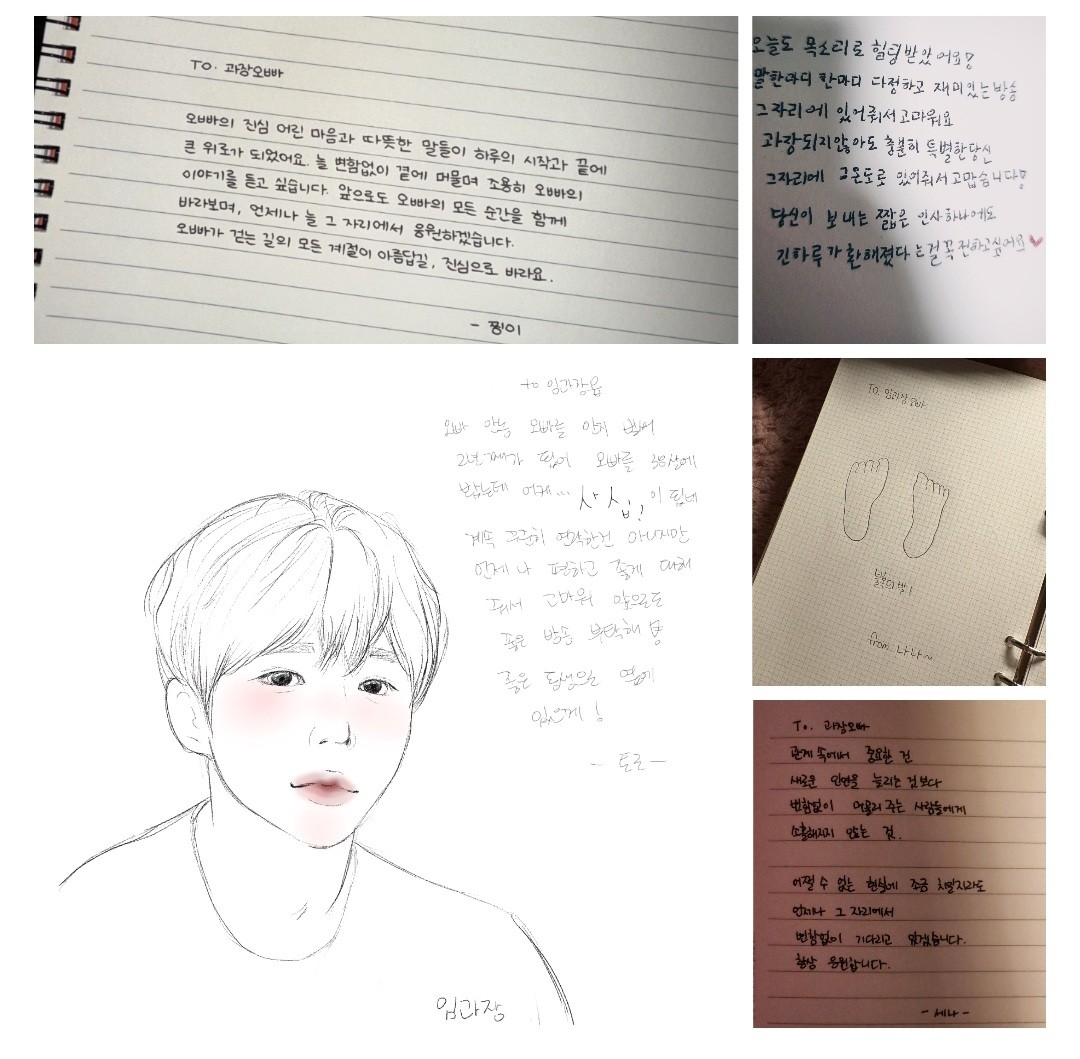 TO. 과장오빠
오빠의 진심 어린 마음과 따뜻한 말들이 하루의 시작과 끝에
큰 위로가 되었어요. 늘 변함없이 곁에 머물며 조용히 오빠의
이야기를 듣고 싶습니다. 앞으로도 오빠의 모든 순간을 함께
바라보며, 언제나 늘 그 자리에서 응원하겠습니다.
오빠가 걷는 길의 모든 계절이 아름답길, 진심으로 바라요.
- 찡이
오늘도 목소리로 힐링받았어요!
말한마디 한마디 다정하고 재미있는방송
그자리에 있어줘서고마워요
과장되지않아도 충분히 특별한당신
그자리에 그온도로 있어줘서고맙습니다!
당신이 보내는 짧은 인사하나에도
긴하루가 환해졌다는걸꼭전하고싶어요
to 임과장
오빠 안능 오빠를 안지 벌써
2년째가 됐어 오빠를 38살에
봤는데 어케... 사십!이 됐네
계속 꾸준히 연락한건 아니지만
언제나 편하고 좋게 대해
줘서 고마워 앞으로도
좋은 방송 부탁해
좋은 동생으로 옆에
있을게!
- 토르 -
임과장
TO. 임과장오빠
의 발!
from 나나~
To. 과장오빠
관계 속에서 중요한 건
새로운 인연을 늘리는 것보다
변함없이 머물러 주는 사람들에게
소홀해지지 않는 것.
어쩔 수 없는 현실에 조금 치일지라도
언제나 그 자리에서
변함없이 기다리고 있겠습니다.
항상 응원합니다.
- 세나 -